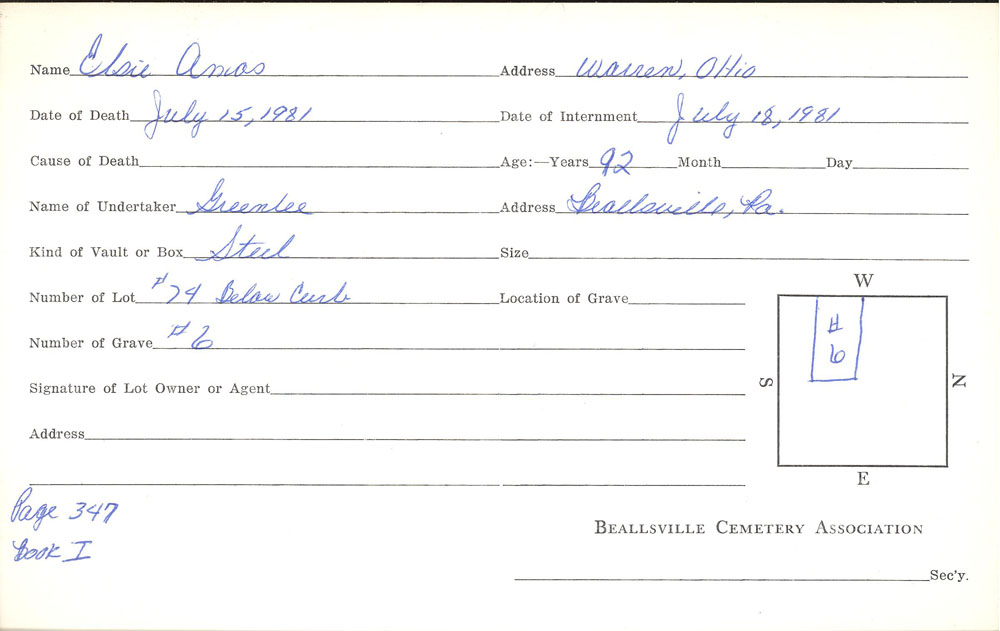 Name Elsie Amos Address Warren, Ohio
Date of Death July 15, 1981 Date of Internment July 18, 1981
Cause of Death Age:—Years 92 Month Day
Name of Undertaker Greenlee Address Beallsville, Pa.
Kind of Vault or Box Steel Size
Number of Lot #74 Below Curb Location of Grave
Number of Grave #6
Signature of Lot Owner or Agent
Address
W
# 6
S
N
E
Page 347
Book I
BEALLSVILLE CEMETERY ASSOCIATION
Sec'y.